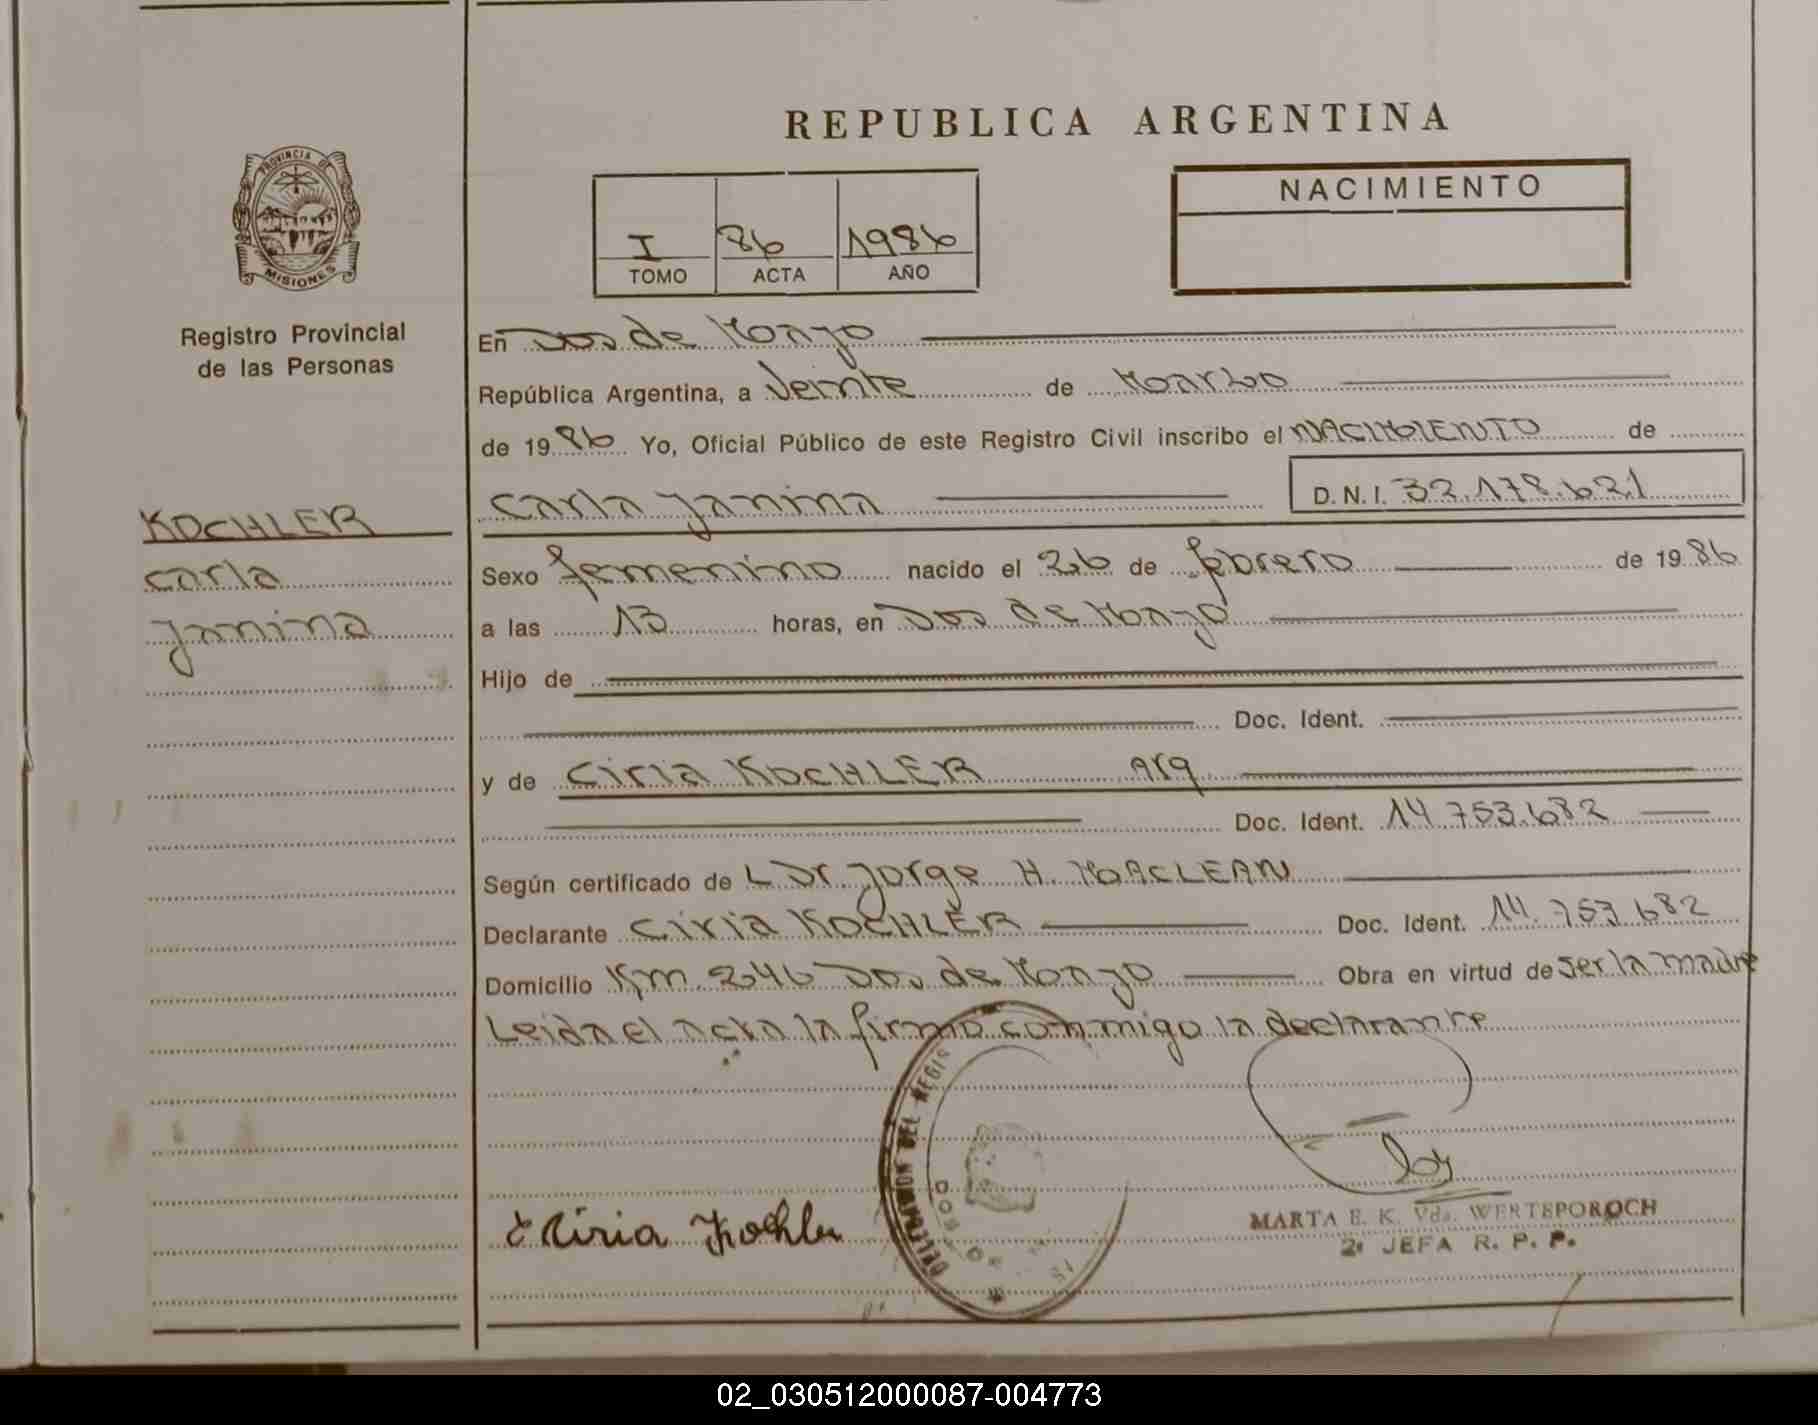 REPUBLICA ARGENTINA
PROVINCIA DE
MISIONES
Registro Provincial
de las Personas
I 86 1986
TOMO ACTA AÑO
NACIMIENTO
En Dos de Mayo
República Argentina, a Veinte de Marzo
de 1986 Yo, Oficial Público de este Registro Civil inscribo el NACIMIENTO de
Carla Janina D.N.I. 32.178.621
KOCHLER
Carla
Janina
Sexo femenino nacido el 26 de febrero de 1986
a las 13 horas, en Dos de Mayo
Hijo de
Doc. Ident.
y de Ciria KOCHLER Arg
Doc. Ident. 14.753.682
Según certificado de L Dr Jorge H. MACLEAN
Declarante Ciria KOCHLER Doc. Ident. 14.753.682
Domicilio Km 246 Dos de Mayo Obra en virtud de ser la madre
Leida el acta la firma conmigo la declarante
DEL REGIS
DOS DE
Kochler
MARTA E. K. Vda. WERTEPOROCH
2ª JEFA R. P. P.
02_030512000087-004773